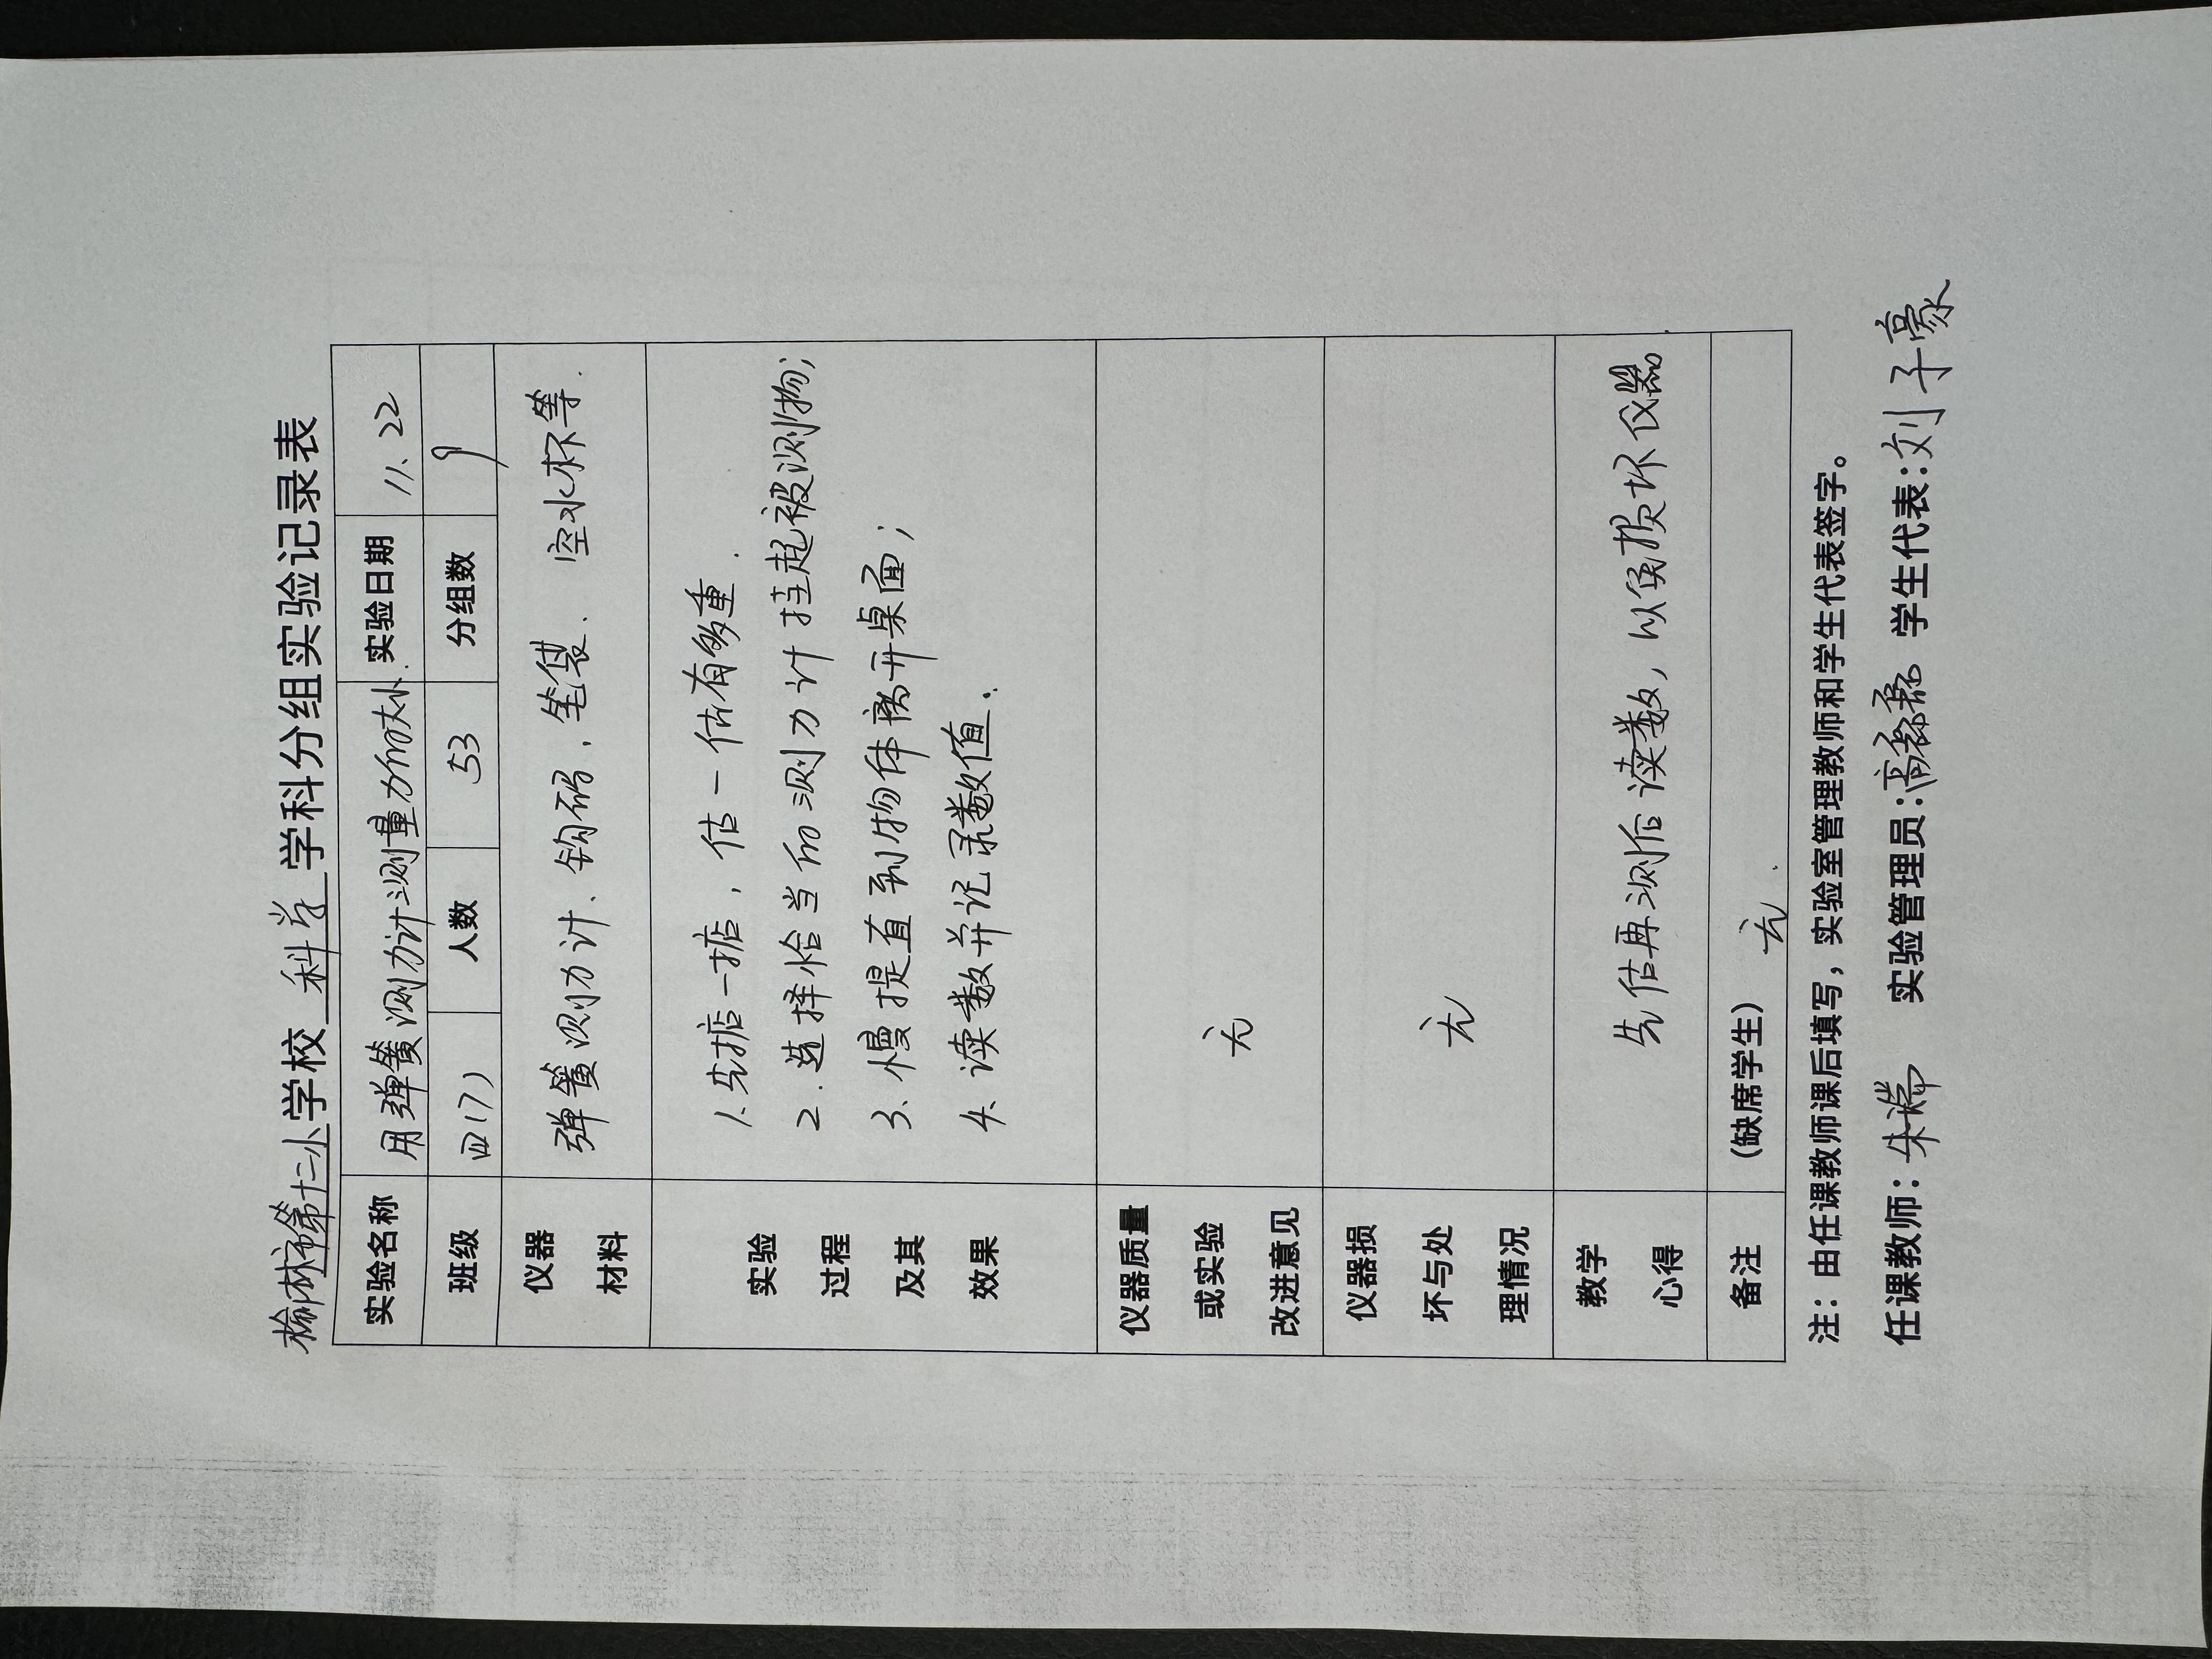 榆林市第十二小学校 科学 学科分组实验记录表
实验名称 用弹簧测力计测量力的大小. 实验日期 11.22
班级 四(7) 人数 53 分组数 9
仪器
材料
弹簧测力计、钩码,笔袋、空水杯等.
实验
过程
及其
效果
1.先掂一掂,估一估有多重.
2.选择恰当的测力计挂起被测物;
3.慢提直到物体离开桌面;
4.读数并记录数值.
仪器质量
或实验
改进意见
无
仪器损
坏与处
理情况
无
教学
心得
先估再测后读数,以免损坏仪器
备注 (缺席学生) 无.
注:由任课教师课后填写,实验室管理教师和学生代表签字。
任课教师: 实验管理员: 学生代表:刘子豪